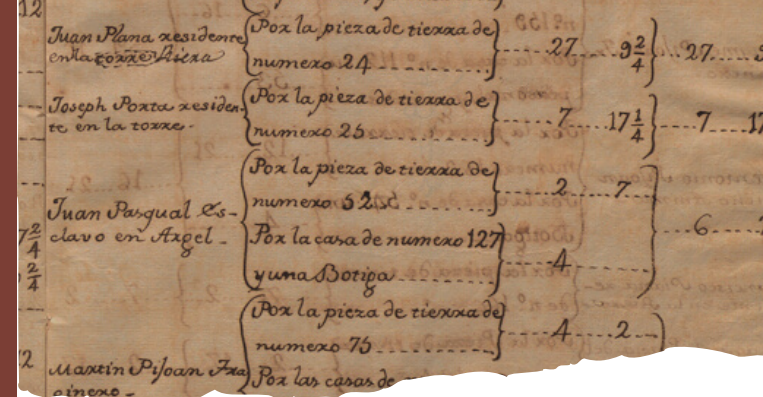 12
Juan Plana residente
en la torre Riera
Por la pieza de tierra de
numero 24
27 9 2/4
27
Joseph Porta residen-
te en la torre.
Por la pieza de tierra de
numero 25
7 17 1/4
7 17
Juan Pasqual Es-
clavo en Argel.
Por la pieza de tierra de
numero 52
2 7
Por la casa de numero 127
y una Botiga
4
6
7 2/4
2/4
Por la pieza de tierra de
numero 75
4 2
12
Martin Pijoan Fra
ginero.
Por las casas de